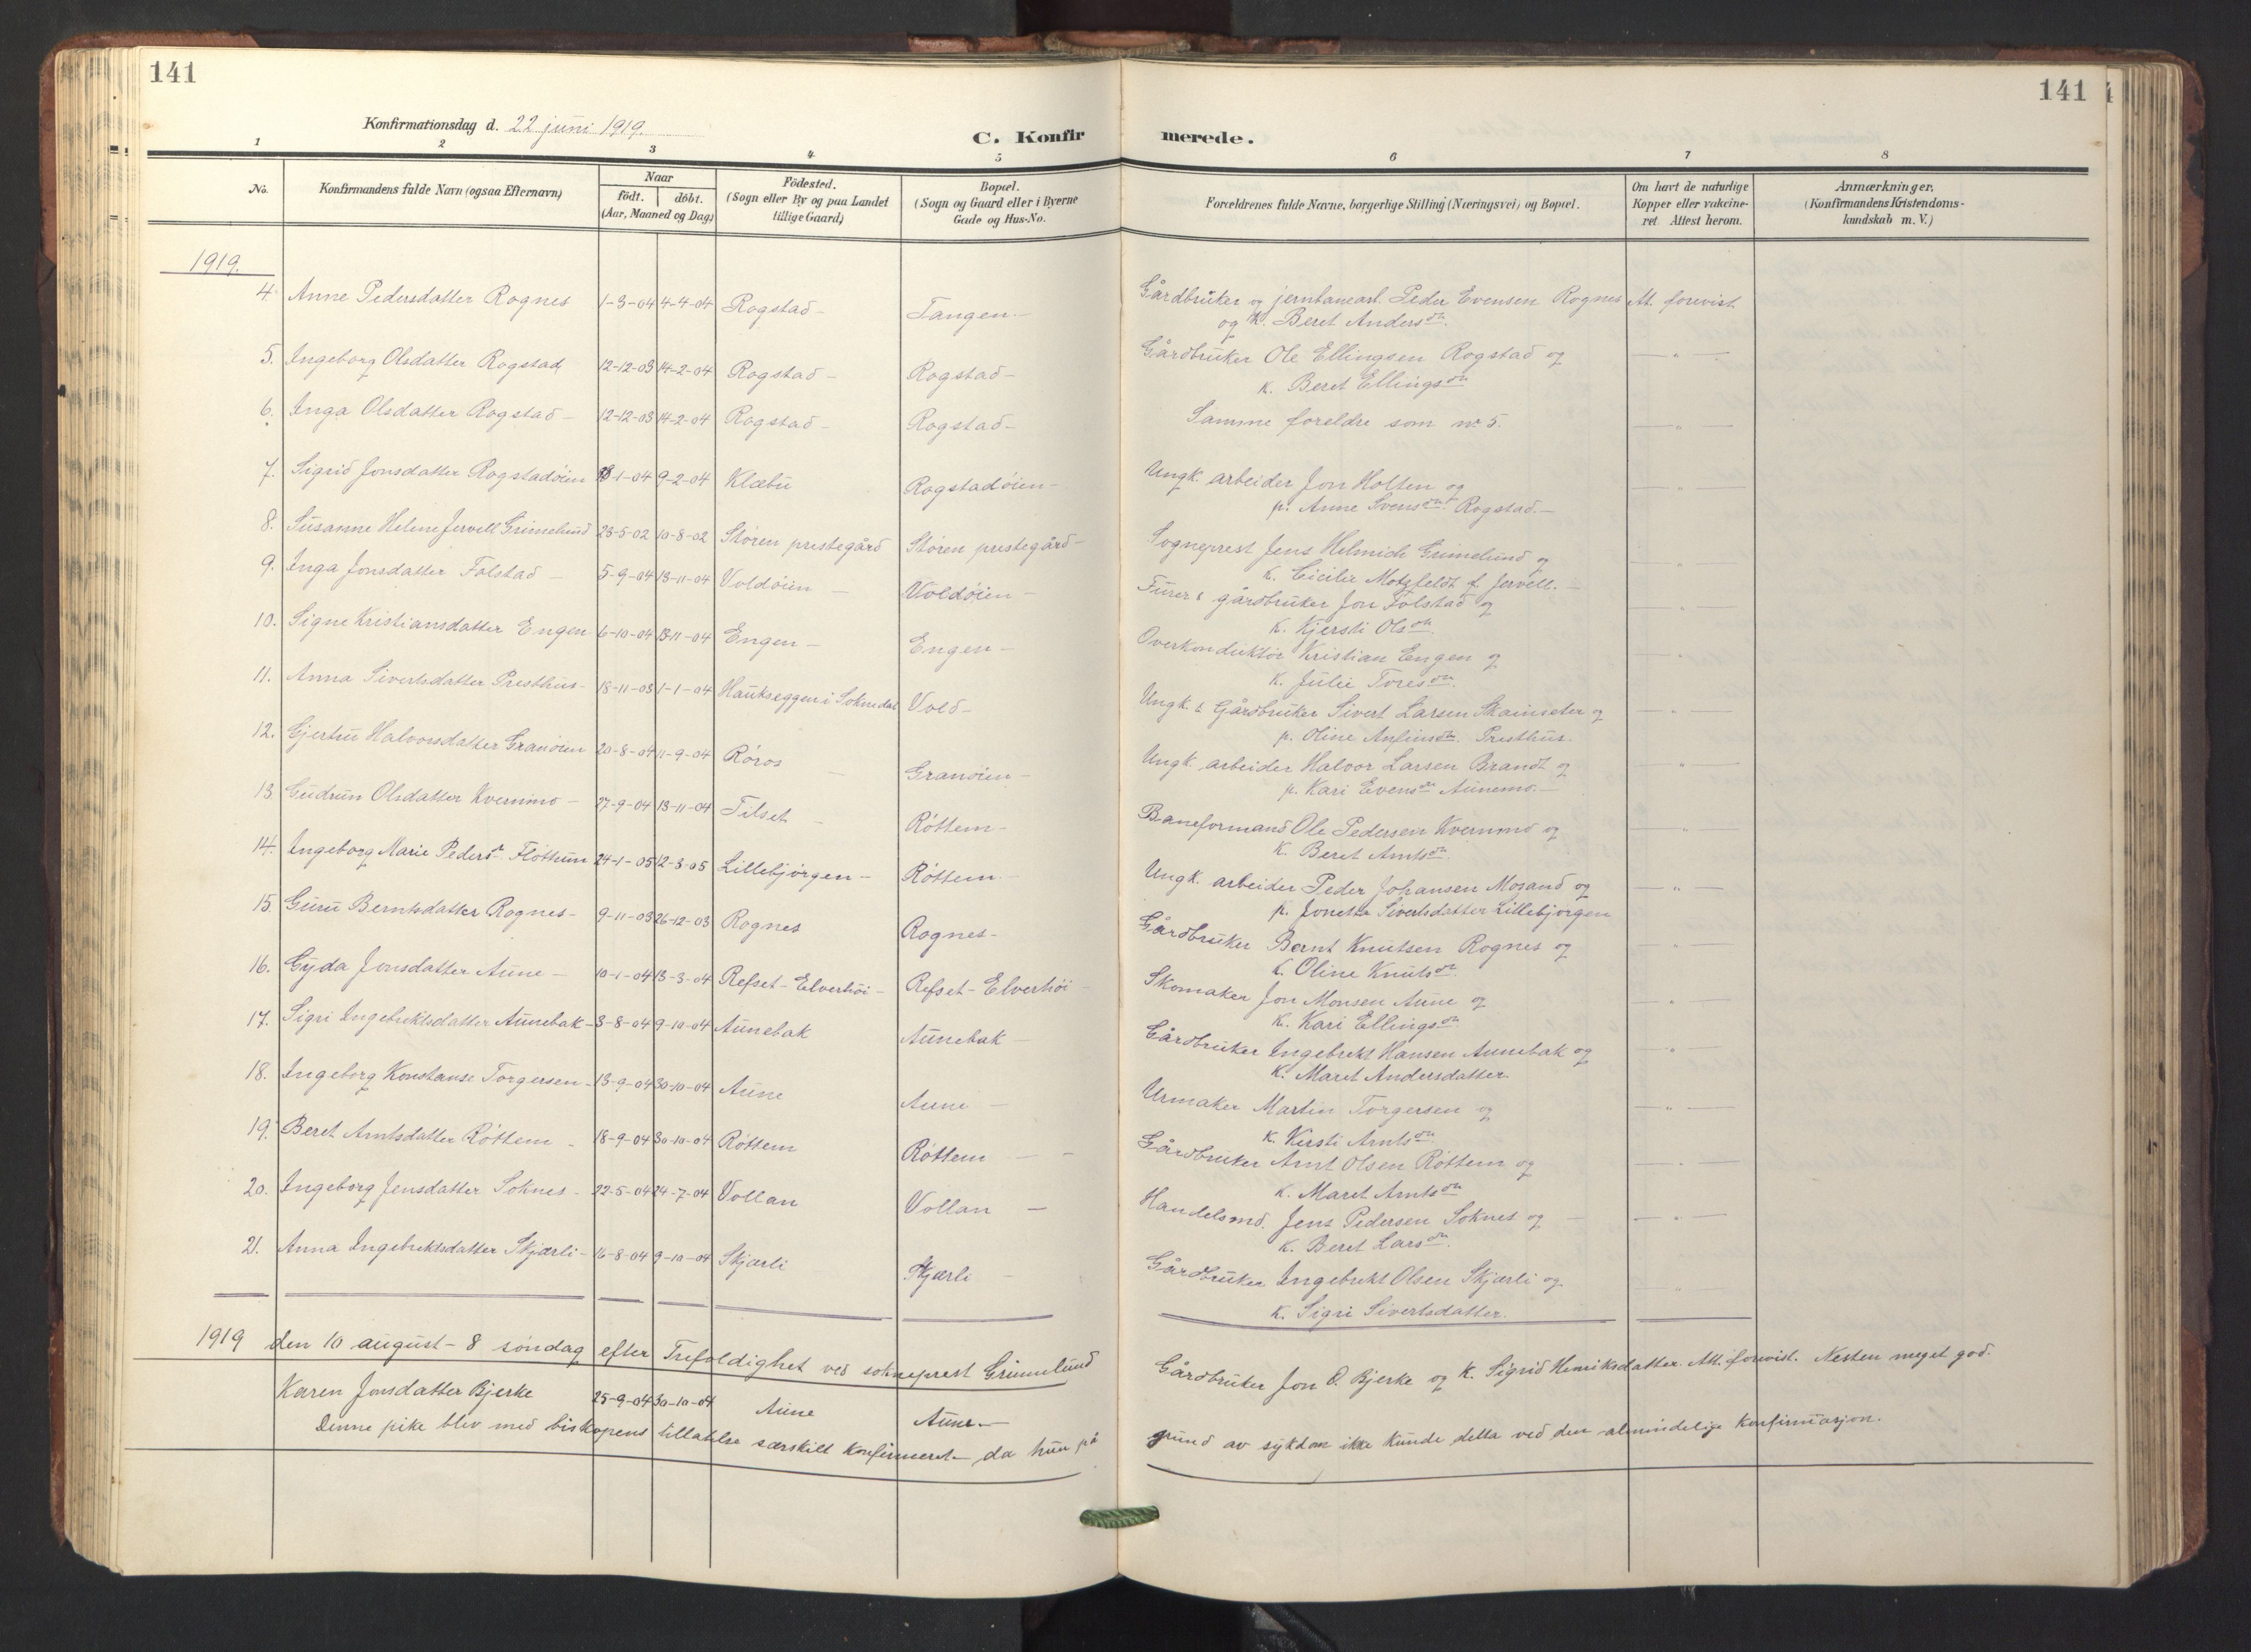 141
141
Konfirmationsdag d. 22 juni 1919.
C. Konfirmerede.
1 2 3 4 5 6 7 8
No. Konfirmandens fulde Navn (ogsaa Efternavn) Naar födt. döbt. (Aar, Maaned og Dag) Födested. (Sogn eller By og paa Landet tillige Gaard) Bopæl. (Sogn og Gaard eller i Byerne Gade og Hus-No. Forældrenes fulde Navne, borgerlige Stilling (Næringsvei) og Bopæl. Om havt de naturlige Kopper eller vakcineret Attest herom. Anmærkninger. (Konfirmandens Kristendomskundskab m. V.)
1919.
4. Anne Pedersdatter Rognes 1-3-04 4-4-04 Rogstad - Tangen - Gårdbruker og jernbanearb. Peder Evensen Rognes Att. forevist
og k. Beret Andersdtr.
5. Ingeborg Olsdatter Rogstad 12-12-03 14-2-04 Rogstad - Rogstad - Gårdbruker Ole Ellingsen Rogstad og — " —
k. Beret Ellingsdtr
6. Inga Olsdatter Rogstad - 12-12-03 14-2-04 Rogstad - Rogstad - Samme foreldre som nr 5. — " —
7. Sigrid Jonsdatter Rogstadöien 1-04 9-2-04 Klæbu Rogstadöien - Ungk. arbeider Jon Holten og — " —
p. Anne Svensdtr Rogstad. -
8. Susanne Helene Jervell Grimelund 23-5-02 10-8-02 Stören prestegård Stören prestegård - Sogneprest Jens Helmich Grimelund og — " —
k. Cicilie Motzfeldt f. Jervell. -
9. Inga Jonsdatter Folstad - 5-9-04 13-11-04 Voldöien - Voldöien - Furer & gårdbruker Jon Folstad og — " —
k. Kjersti Olsdtr.
10. Signe Kristiansdatter Engen 6-10-04 13-11-04 Engen - Engen - Overkonduktör Kristian Engen og — " —
k. Julie Toresdtr.
11. Anna Sivertsdatter Presthus - 18-11-03 1-1-04 Haukseggen i Soknedal Vold - Ungk. & Gårdbruker Sivert Larsen Skainseter og — " —
p. Oline Anfinsdtr. Presthus.
12. Gjertru Halvorsdatter Granöien 20-8-04 11-9-04 Röros - Granöien - Ungk. arbeider Halvor Larsen Brandt og — " —
p. Kari Evensdtr Aunemo. -
13. Gudrun Olsdatter Kvernmo - 27-9-04 13-11-04 Tilset - Röttem - Baneformand Ole Pedersen Kvernmo og — " —
k. Beret Arntsdtr.
14. Ingeborg Marie Pedersd. Flöttum 24-1-05 12-3-05 Lillebjörgen - Röttem - Ungk. arbeider Peder Johansen Mosand og — " —
p. Jonetta Sivertsdatter Lillebjörgen
15. Guru Berntsdatter Rognes - 9-11-03 26-12-03 Rognes Rognes - Gårdbruker Bernt Knutsen Rognes og — " —
k. Oline Knutsdtr.
16. Gyda Jonsdatter Aune - 10-1-04 13-3-04 Refset - Elverhöi - Refset - Elverhöi - Skomaker Jon Monsen Aune og — " —
k. Kari Ellingsdtr
17. Sigri Ingebrektsdatter Aunebak - 3-8-04 9-10-04 Aunebak Aunebak - Gårdbruker Ingebrekt Hansen Aunebak og — " —
k. Maret Andersdatter.
18. Ingeborg Konstanse Torgersen - 13-9-04 30-10-04 Aune Aune - Urmaker Martin Torgersen og — " —
k. Kirsti Arntsdtr.
19. Beret Arntsdatter Röttem - 18-9-04 30-10-04 Röttem Röttem - - Gårdbruker Arnt Olsen Röttem og — " —
k. Maret Arntsdtr
20. Ingeborg Jensdatter Soknes - 22-5-04 24-7-04 Vollan Vollan - Handelsmd. Jens Pedersen Soknes og - — " —
k. Beret Larsdtr.
21. Anna Ingebrektsdatter Skjærli - 16-8-04 9-10-04 Skjærli Skjærli - Gårdbruker Ingebrekt Olsen Skjærli og — " —
k. Sigri Sivertsdatter.
1919 den 10 august - 8 söndag efter Trefoldighet ved sokneprest Grimelund
Karen Jonsdatter Bjerke 25-9-04 30-10-04 Aune Aune - Gårdbruker Jon O. Bjerke og k. Sigrid Henriksdatter. Att. forevist. Nesten meget god.
Denne pike blev med biskopens tillatelse særskilt konfirmeret - da hun på grund av sykdom ikke kunde delta ved den almindelige konfirmasjon.